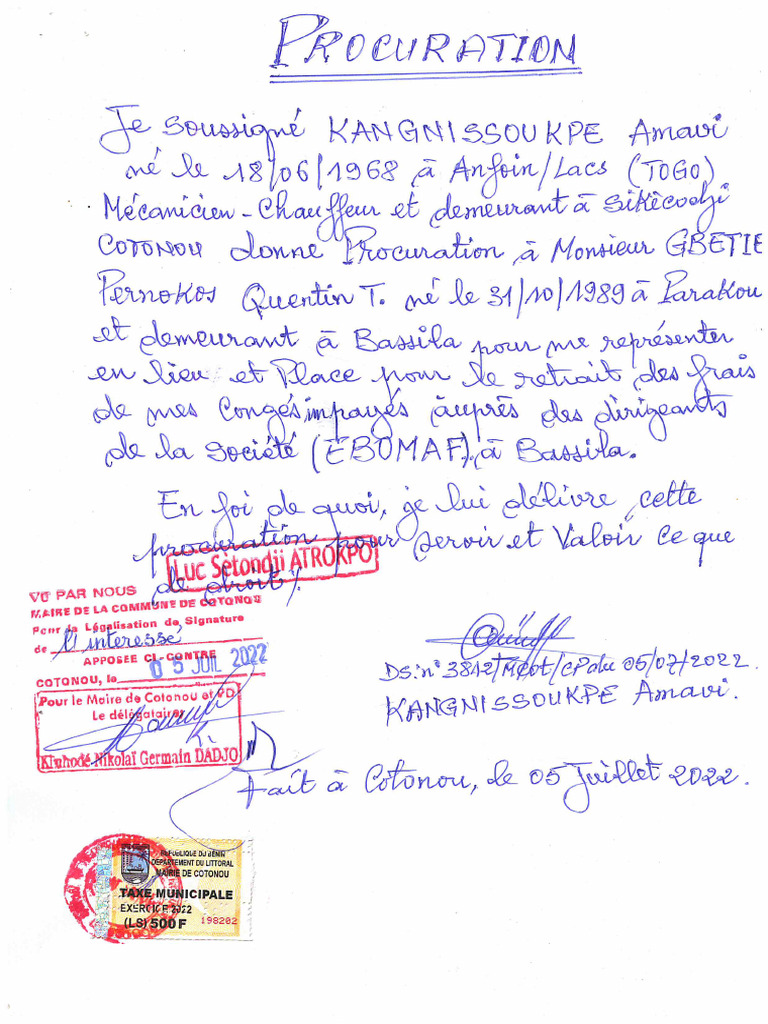 PROCURATION
Je soussigné KANGNISSOUKPE Amavi
né le 18/06/1968 à Anfoin/Lacs (TOGO)
Mécanicien-Chauffeur et demeurant à Sikècodji
COTONOU donne Procuration à Monsieur GBETIE
Pernokos Quentin T. né le 31/10/1989 à Parakou
et demeurant à Bassila pour me représenter
en lieu et Place pour le retrait des frais
de mes Congés impayés auprès des dirigeants
de la Société (EBOMAF) à Bassila.
En foi de quoi, je lui délivre cette
procuration pour servir et Valoir ce que
de droit/.
Luc Sètondji ATROKPO
VU PAR NOUS
MAIRE DE LA COMMUNE DE COTONOU
Pour la Légalisation de Signature
de l'intéressé
APPOSEE CI-CONTRE
COTONOU, le 05 JUIL 2022
Pour le Maire de Cotonou et PD
Le délégataire
Kluhodé Nikolaï Germain DADJO
DS: n° 3842/MCOT/CP du 05/07/2022.
KANGNISSOUKPE Amavi.
Fait à Cotonou, le 05 Juillet 2022.
REPUBLIQUE DU BENIN
DEPARTEMENT DU LITTORAL
MAIRIE DE COTONOU
TAXE MUNICIPALE
EXERCICE 2022
198202
(LS) 500 F